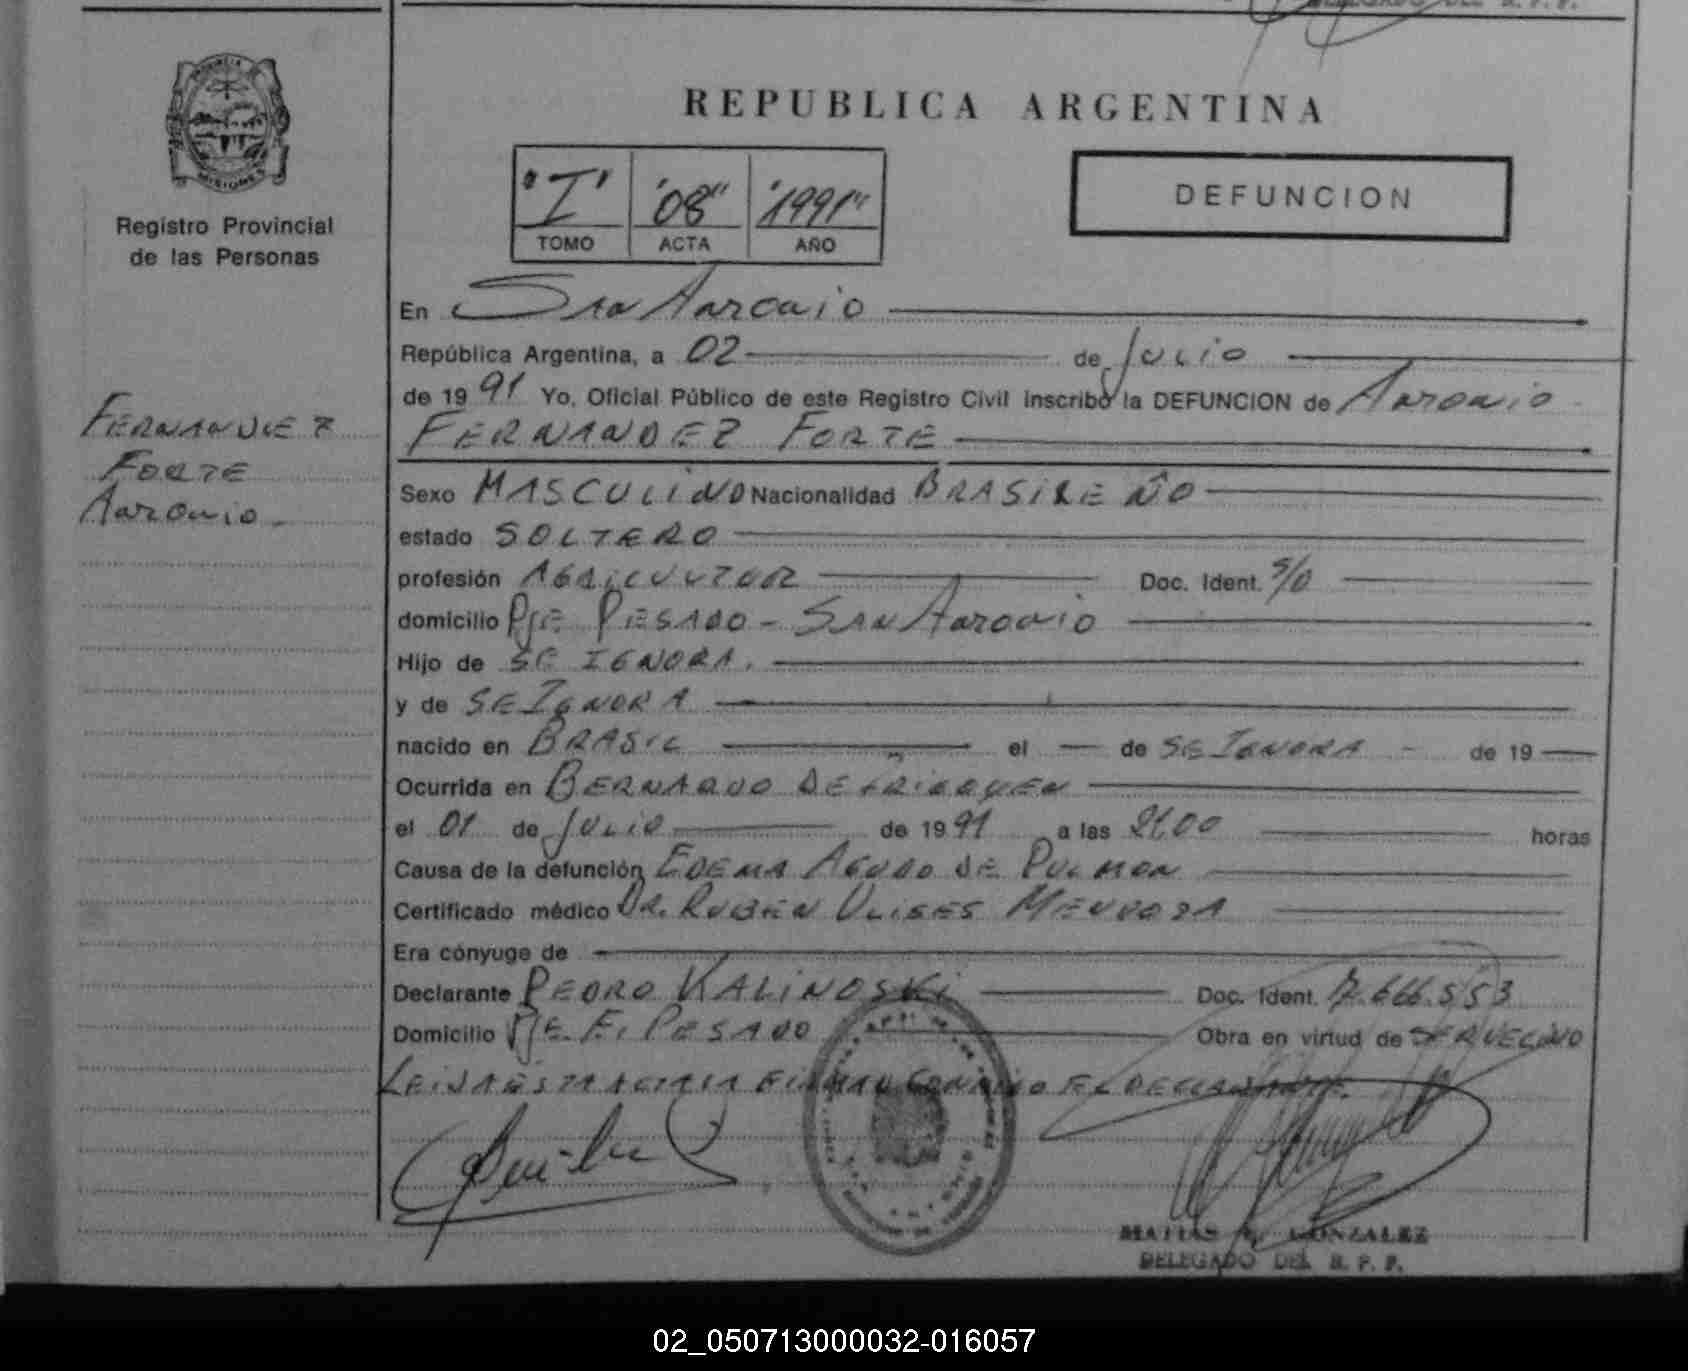 REPUBLICA ARGENTINA
PROVINCIA DE
MISIONES
Registro Provincial
de las Personas
"I" "08" "1991"
TOMO ACTA AÑO
DEFUNCION
En San Antonio
República Argentina, a 02 de Julio
de 1991 Yo, Oficial Público de este Registro Civil inscribo la DEFUNCION de Antonio
FERNANDEZ FORTE
FERNANDEZ
FORTE
Antonio
Sexo MASCULINO Nacionalidad BRASILEÑO
estado SOLTERO
profesión AGRICULTOR Doc. Ident. S/D
domicilio Pje PESADO - SAN Antonio
Hijo de SE IGNORA.
y de SE IGNORA
nacido en BRASIL el — de SE IGNORA - de 19 —
Ocurrida en BERNARDO DE IRIGOYEN
el 01 de Julio de 1991 a las 21,00 horas
Causa de la defunción EDEMA AGUDO DE PULMON
Certificado médico DR. RUBEN ULISES MENDOZA
Era cónyuge de
Declarante PEDRO KALINOSKI Doc. Ident. 7.666.553
Domicilio Pje. F. PESADO Obra en virtud de SER VECINO
LEIDA ESTA ACTA FIRMAN CONMIGO EL DECLARANTE.
MATIAS GONZALEZ
DELEGADO DEL R. P. P.
02_050713000032-016057